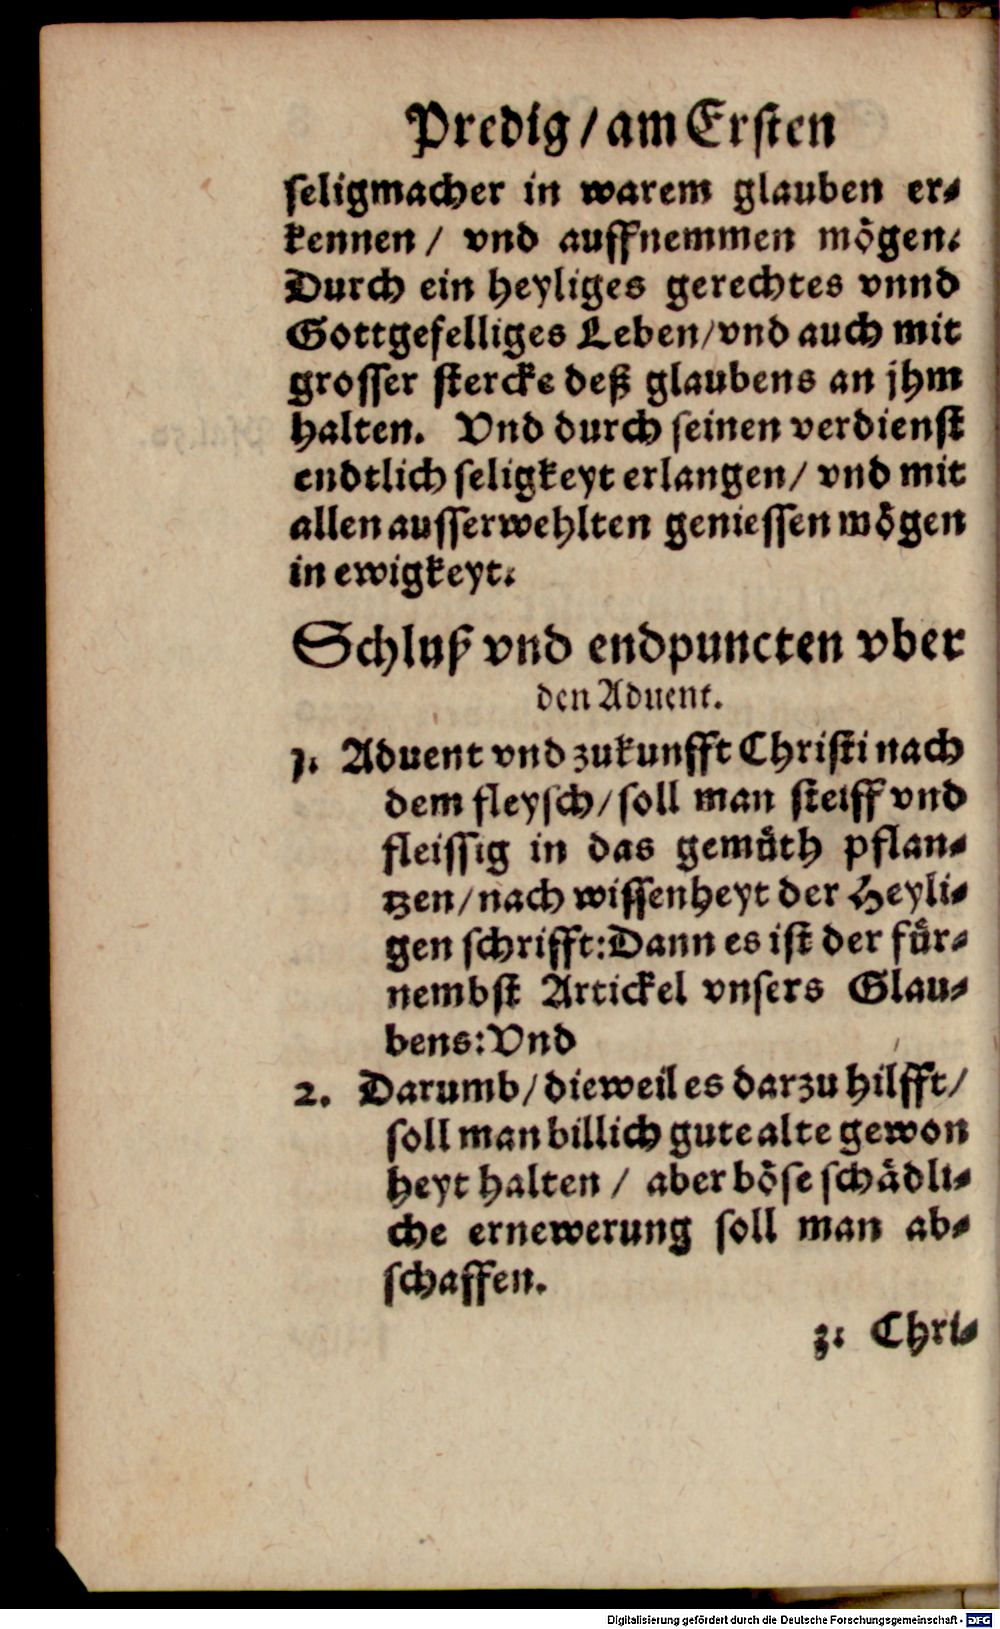 Predig / am Ersten
seligmacher in warem glauben er⸗
kennen / vnd auffnemmen mögen.
Durch ein heyliges gerechtes vnnd
Gottgefelliges Leben / vnd auch mit
grosser stercke deß glaubens an jhm
halten. Vnd durch seinen verdienst
endtlich seligkeyt erlangen / vnd mit
allen ausserwehlten geniessen mögen
in ewigkeyt.
Schluß vnd endpuncten vber
den Aduent.
1. Aduent vnd zukunfft Christi nach
dem fleysch / soll man steiff vnd
fleissig in das gemüth pflan⸗
tzen / nach wissenheyt der Heyli⸗
gen schrifft: Dann es ist der für⸗
nembst Artickel vnsers Glau⸗
bens: Vnd
2. Darumb / dieweil es darzu hilfft /
soll man billich gute alte gewon
heyt halten / aber böse schädli⸗
che ernewerung soll man ab⸗
schaffen.
3. Chri⸗
Digitalisierung gefördert durch die Deutsche Forschungsgemeinschaft - DFG